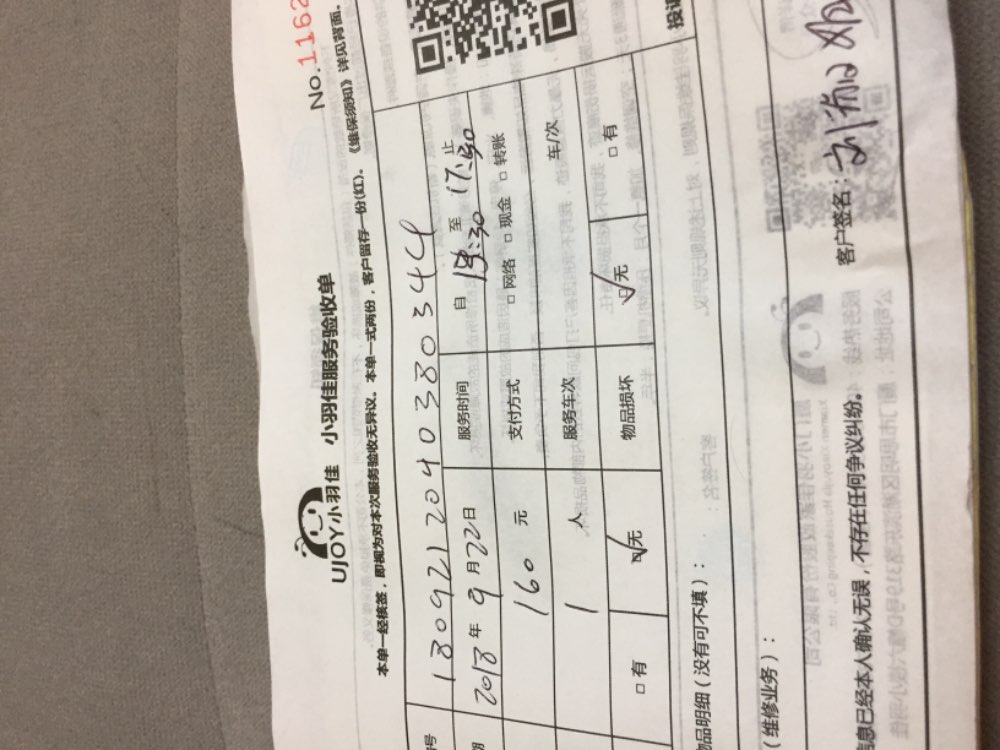 No.1162
UJOY小羽佳 小羽佳服务验收单
本单一经核签，即视为对本次服务验收无异议。本单一式两份，客户留存一份(红)。《维保须知》详见背面。
号 180921204038034
期 2018年9月22日 服务时间 自 至17:30止
160元 支付方式 □网络 □现金 □转账
1人 服务车次 车/次
□有 ☑无 物品损坏 ☑无 □有
投诉
物品明细（没有可不填）：
（维修业务）：
信息已经本人确认无误，不存在任何争议纠纷。 客户签名：刘